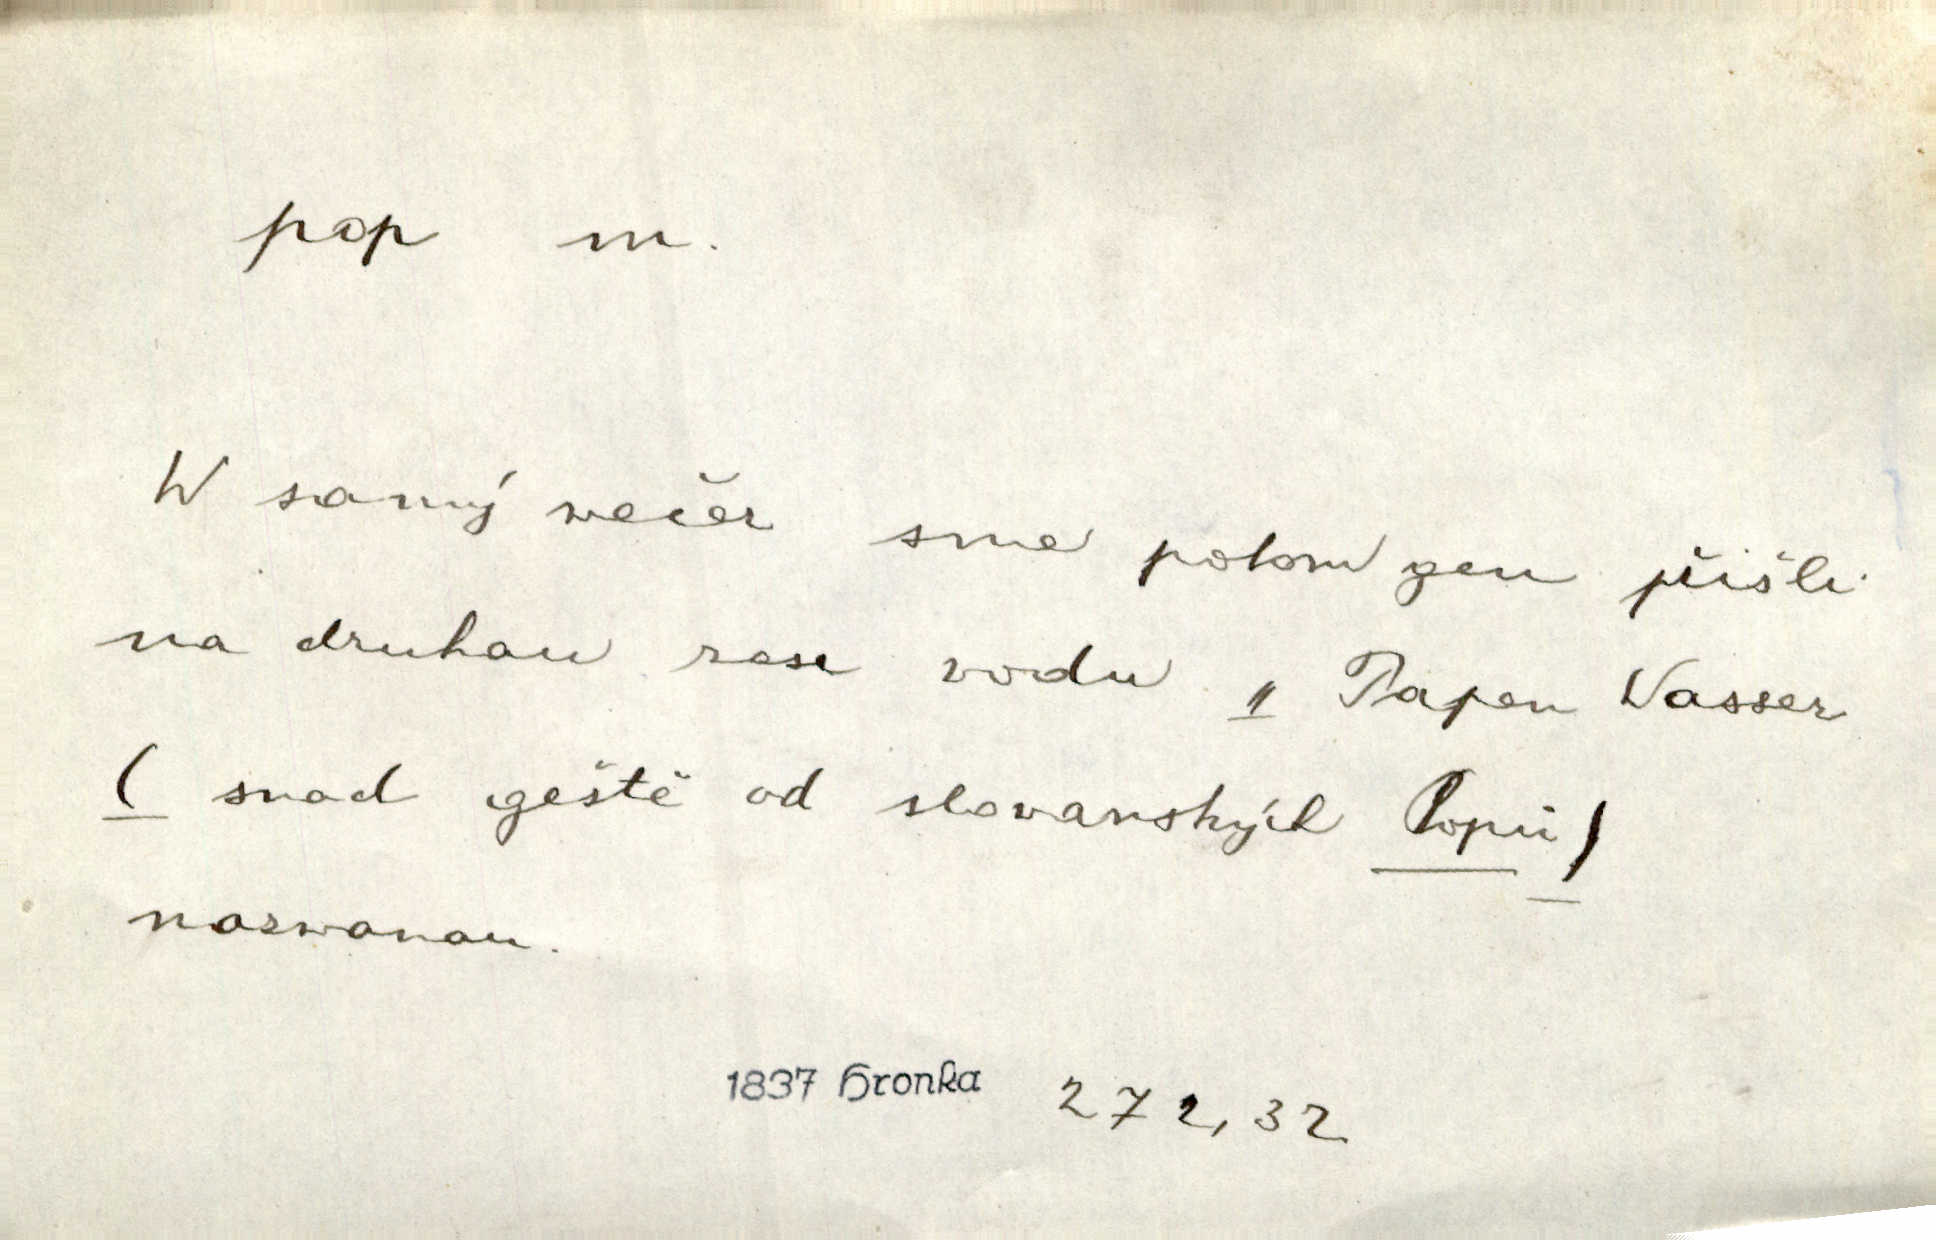 pop m.
W samý wečer sme potom gen přišli
na druhau zase vodu „ Papen Wasser
( snad geště od slovanských Popů )
nazwanau.
1837 Hronka 272,32